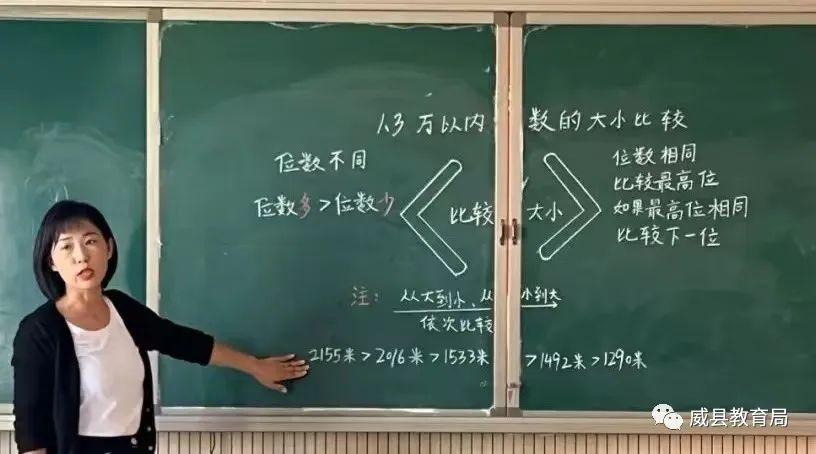 1.3 万以内数的大小比较
位数不同
位数多>位数少
比较大小
位数相同
比较最高位
如果最高位相同
比较下一位
注：从大到小、从小到大
依次比较
2155米>2016米>1533米>1492米>1290米
威县教育局